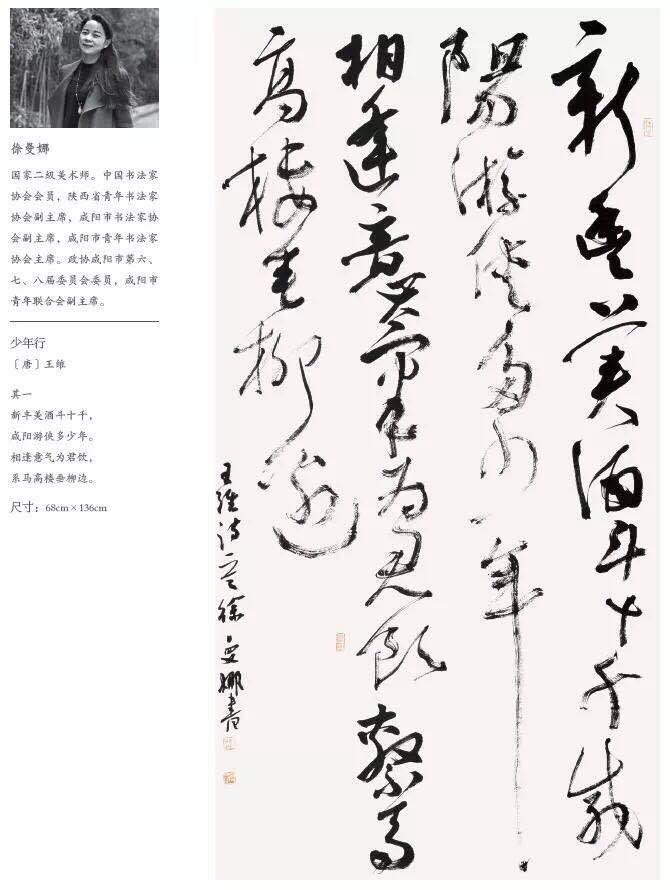 徐曼娜
国家二级美术师。中国书法家
协会会员,陕西省青年书法家
协会副主席,咸阳市书法家协
会副主席,咸阳市青年书法家
协会主席。政协咸阳市第六、
七、八届委员会委员,咸阳市
青年联合会副主席。
少年行
〔唐〕王维
其一
新丰美酒斗十千,
咸阳游侠多少年。
相逢意气为君饮,
系马高楼垂柳边。
尺寸:68cm×136cm
新豐美酒斗十千咸
陽游侠多少年
相逢意氣为君飲繫馬
高樓垂柳邊
王維诗一首徐曼娜書